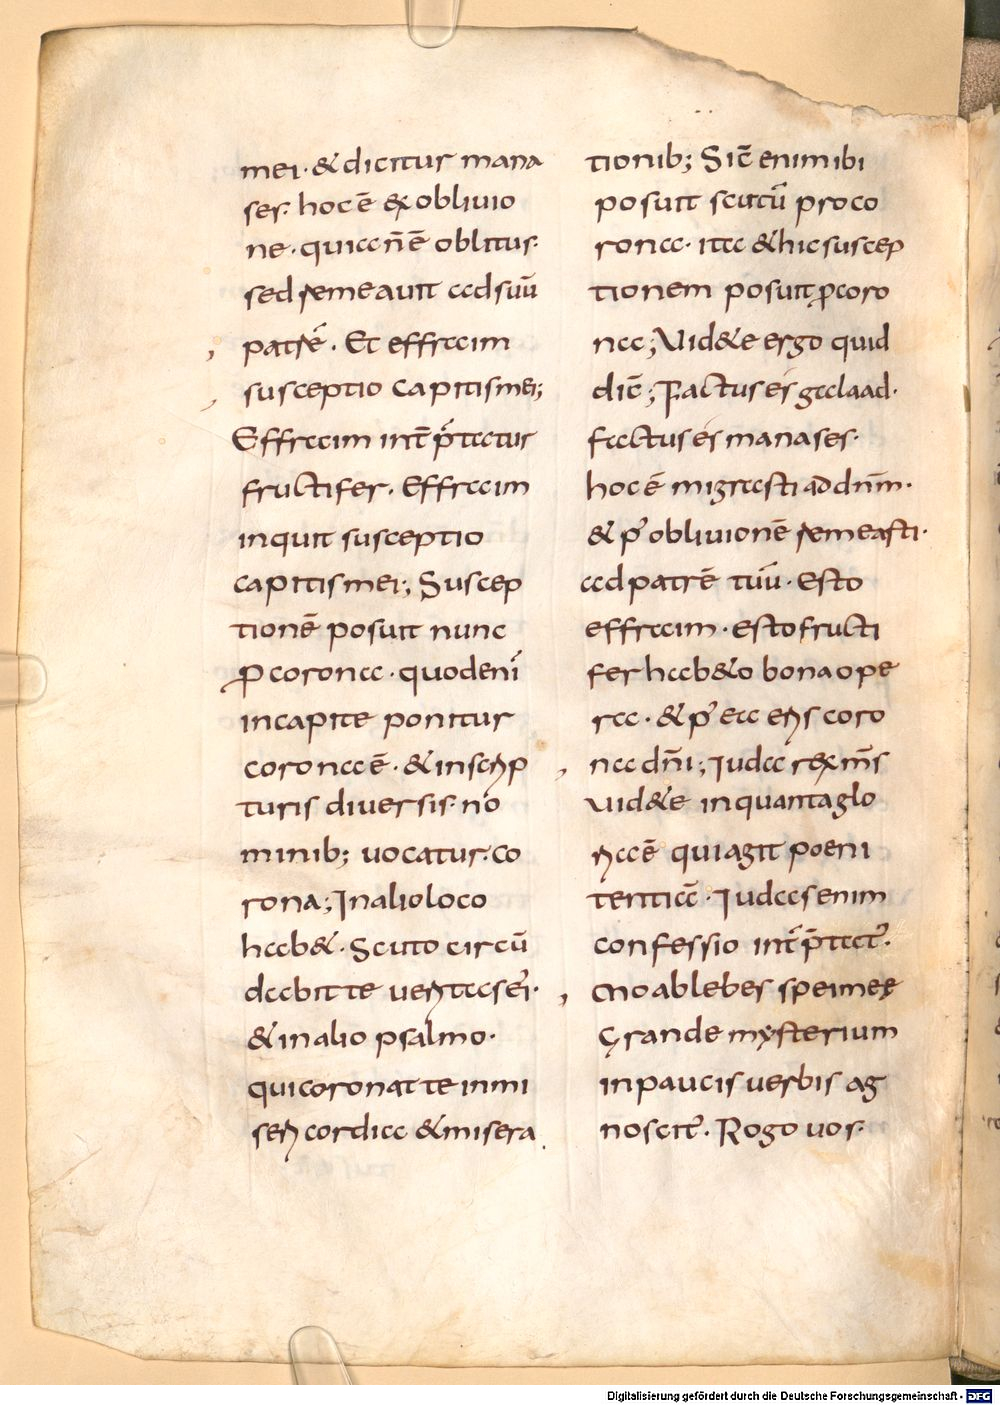 mei · & dicitur mana
ses · hoc ē ex obliuio
ne · quia nē oblitus ·
sed remeauit ad suū
patrē . Et effraim
susceptio capitis mei;
Effraim int̄ p̄tatur
fructifer . Effraim
inquit susceptio
capitis mei; Suscep
tionē posuit nunc
p̄ corona · quod eni
in capite ponitur
corona ē · & in scrip
turis diuersis no
minib; uocatur · co
rona; In alio loco
hab& · Scuto circū
dabit te ueritas ei' ·
& in alio psalmo ·
qui coronat te in mi
sericordia & misera
tionib; Sic̄ enim ibi
posuit scutū pro co
rona · ita & hic suscep
tionem posuit p̄ coro
na; Uid&e ergo quid
dic̄; Factus es galaad ·
factus es manases ·
hoc ē migrasti ad dn̄m ·
& p' obliuionē remeasti ·
ad patrē tuū · Esto
effraim · esto fructi
fer hab&o bona ope
ra · & p' ea eris coro
na dn̄i; Iuda rex m̄s
Uid&e in quanta glo
ria ē qui agit poeni
tentiā · Iudas enim
confessio int̄p̄tat' .
Moab lebes spei meę
Grande mysterium
in paucis uerbis ag
noscit' . Rogo uos ·
Digitalisierung gefördert durch die Deutsche Forschungsgemeinschaft - DFG